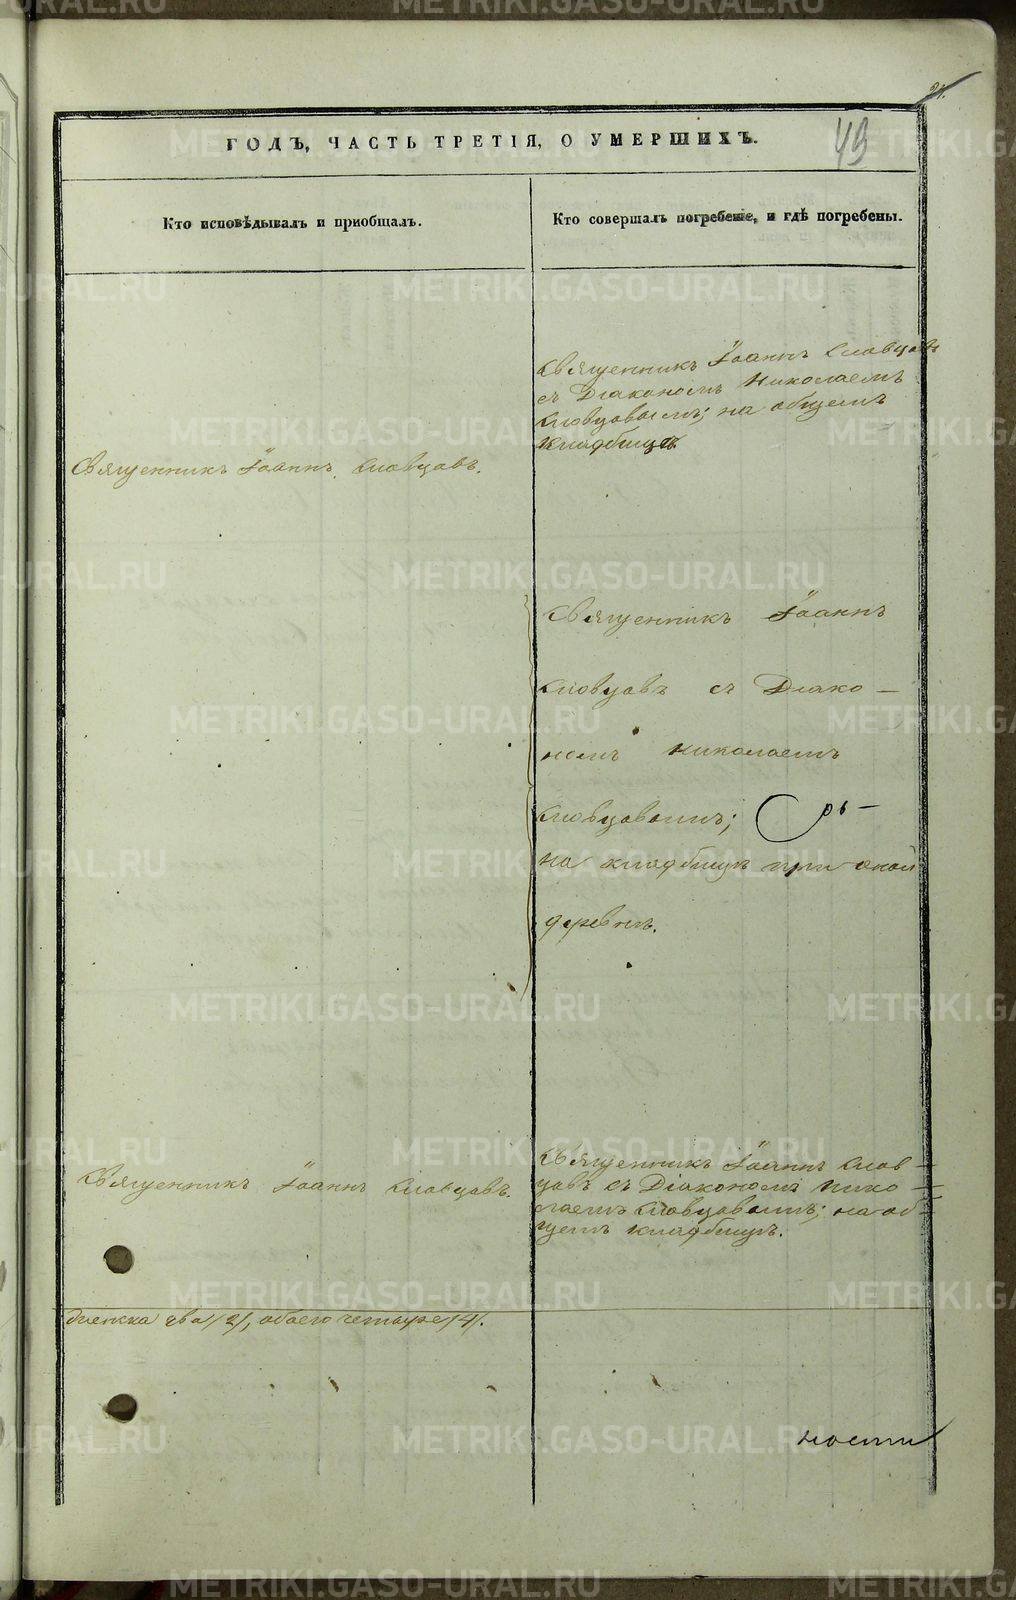 21.
49
ГОДЪ, ЧАСТЬ ТРЕТІЯ, О УМЕРШИХЪ.
Кто исповѣдывалъ и пріобщалъ.
Кто совершалъ погребеніе, и гдѣ погребены.
Священникъ Іоаннъ Словцовъ
съ Діакономъ Николаемъ
Словцовымъ; на общемъ
кладбищѣ
Священникъ Іоаннъ Словцовъ.
Священникъ Іоаннъ
Словцовъ съ Діако-
номъ Николаемъ
Словцовымъ;
на кладбищѣ при оной
деревнѣ.
Священникъ Іоаннъ Словцовъ.
Священникъ Іоаннъ Слов-
цовъ съ Діакономъ Нико-
лаемъ Словцовымъ; на об-
щемъ кладбищѣ.
женска два /2/, обоего четыре /4/.
ности
METRIKI.GASO-URAL.RU